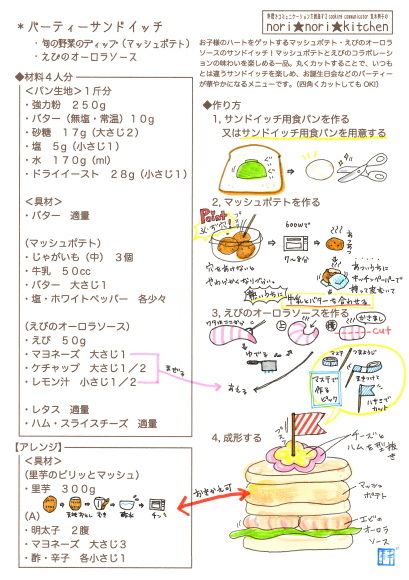 * パーティーサンドイッチ
・旬の野菜のディップ（マッシュポテト）
・えびのオーロラソース
nori★nori★kitchen
お子様のハートをゲットするマッシュポテト・えびのオーロラ
ソースのサンドイッチ！マッシュポテトとえびのコラボレーショ
ンの味わいを楽しめる一品。丸くカットすることで、いつも
とは違うサンドイッチを楽しめ、お誕生日会などのパーティー
が華やかになるメニューです。(四角カットしてもOK!)
◆材料４人分
＜パン生地＞１斤分
・強力粉　２５０g
・バター（無塩・常温）１０g
・砂糖　１７g（大さじ２）
・塩　５g（小さじ１）
・水　１７０g（ml）
・ドライイースト　２８g（小さじ１）
＜具材＞
・バター　適量
（マッシュポテト）
・じゃがいも（中）　３個
・牛乳　５０cc
・バター　大さじ１
・塩・ホワイトペッパー　各少々
（えびのオーロラソース）
・えび　５０g
・マヨネーズ　大さじ１
・ケチャップ　大さじ１／２
・レモン汁　小さじ１／２
まぜる
・レタス　適量
・ハム・スライスチーズ　適量
【アレンジ】
＜具材＞
（里芋のピリッとマッシュ）
・里芋　３００g
(A)
・明太子　２腹
・マヨネーズ　大さじ３
・酢・辛子　各小さじ１
おきかえ可
◆作り方
１, サンドイッチ用食パンを作る
又はサンドイッチ用食パンを用意する
２, マッシュポテトを作る
Point
600Wで
7〜8分
穴をあけないと
やわらかくならない
あついうちに
キッチンペーパーで
熱いうちに
牛乳とバターを合わせる
３, えびのオーロラソースを作る
cut
ゆでる
あえる
マステ
つまようじ
マステで
作る
ピック
ハサミで
カット
４, 成形する
チーズと
ハムを型抜き
マッシュ
ポテト
エビの
オーロラ
ソース